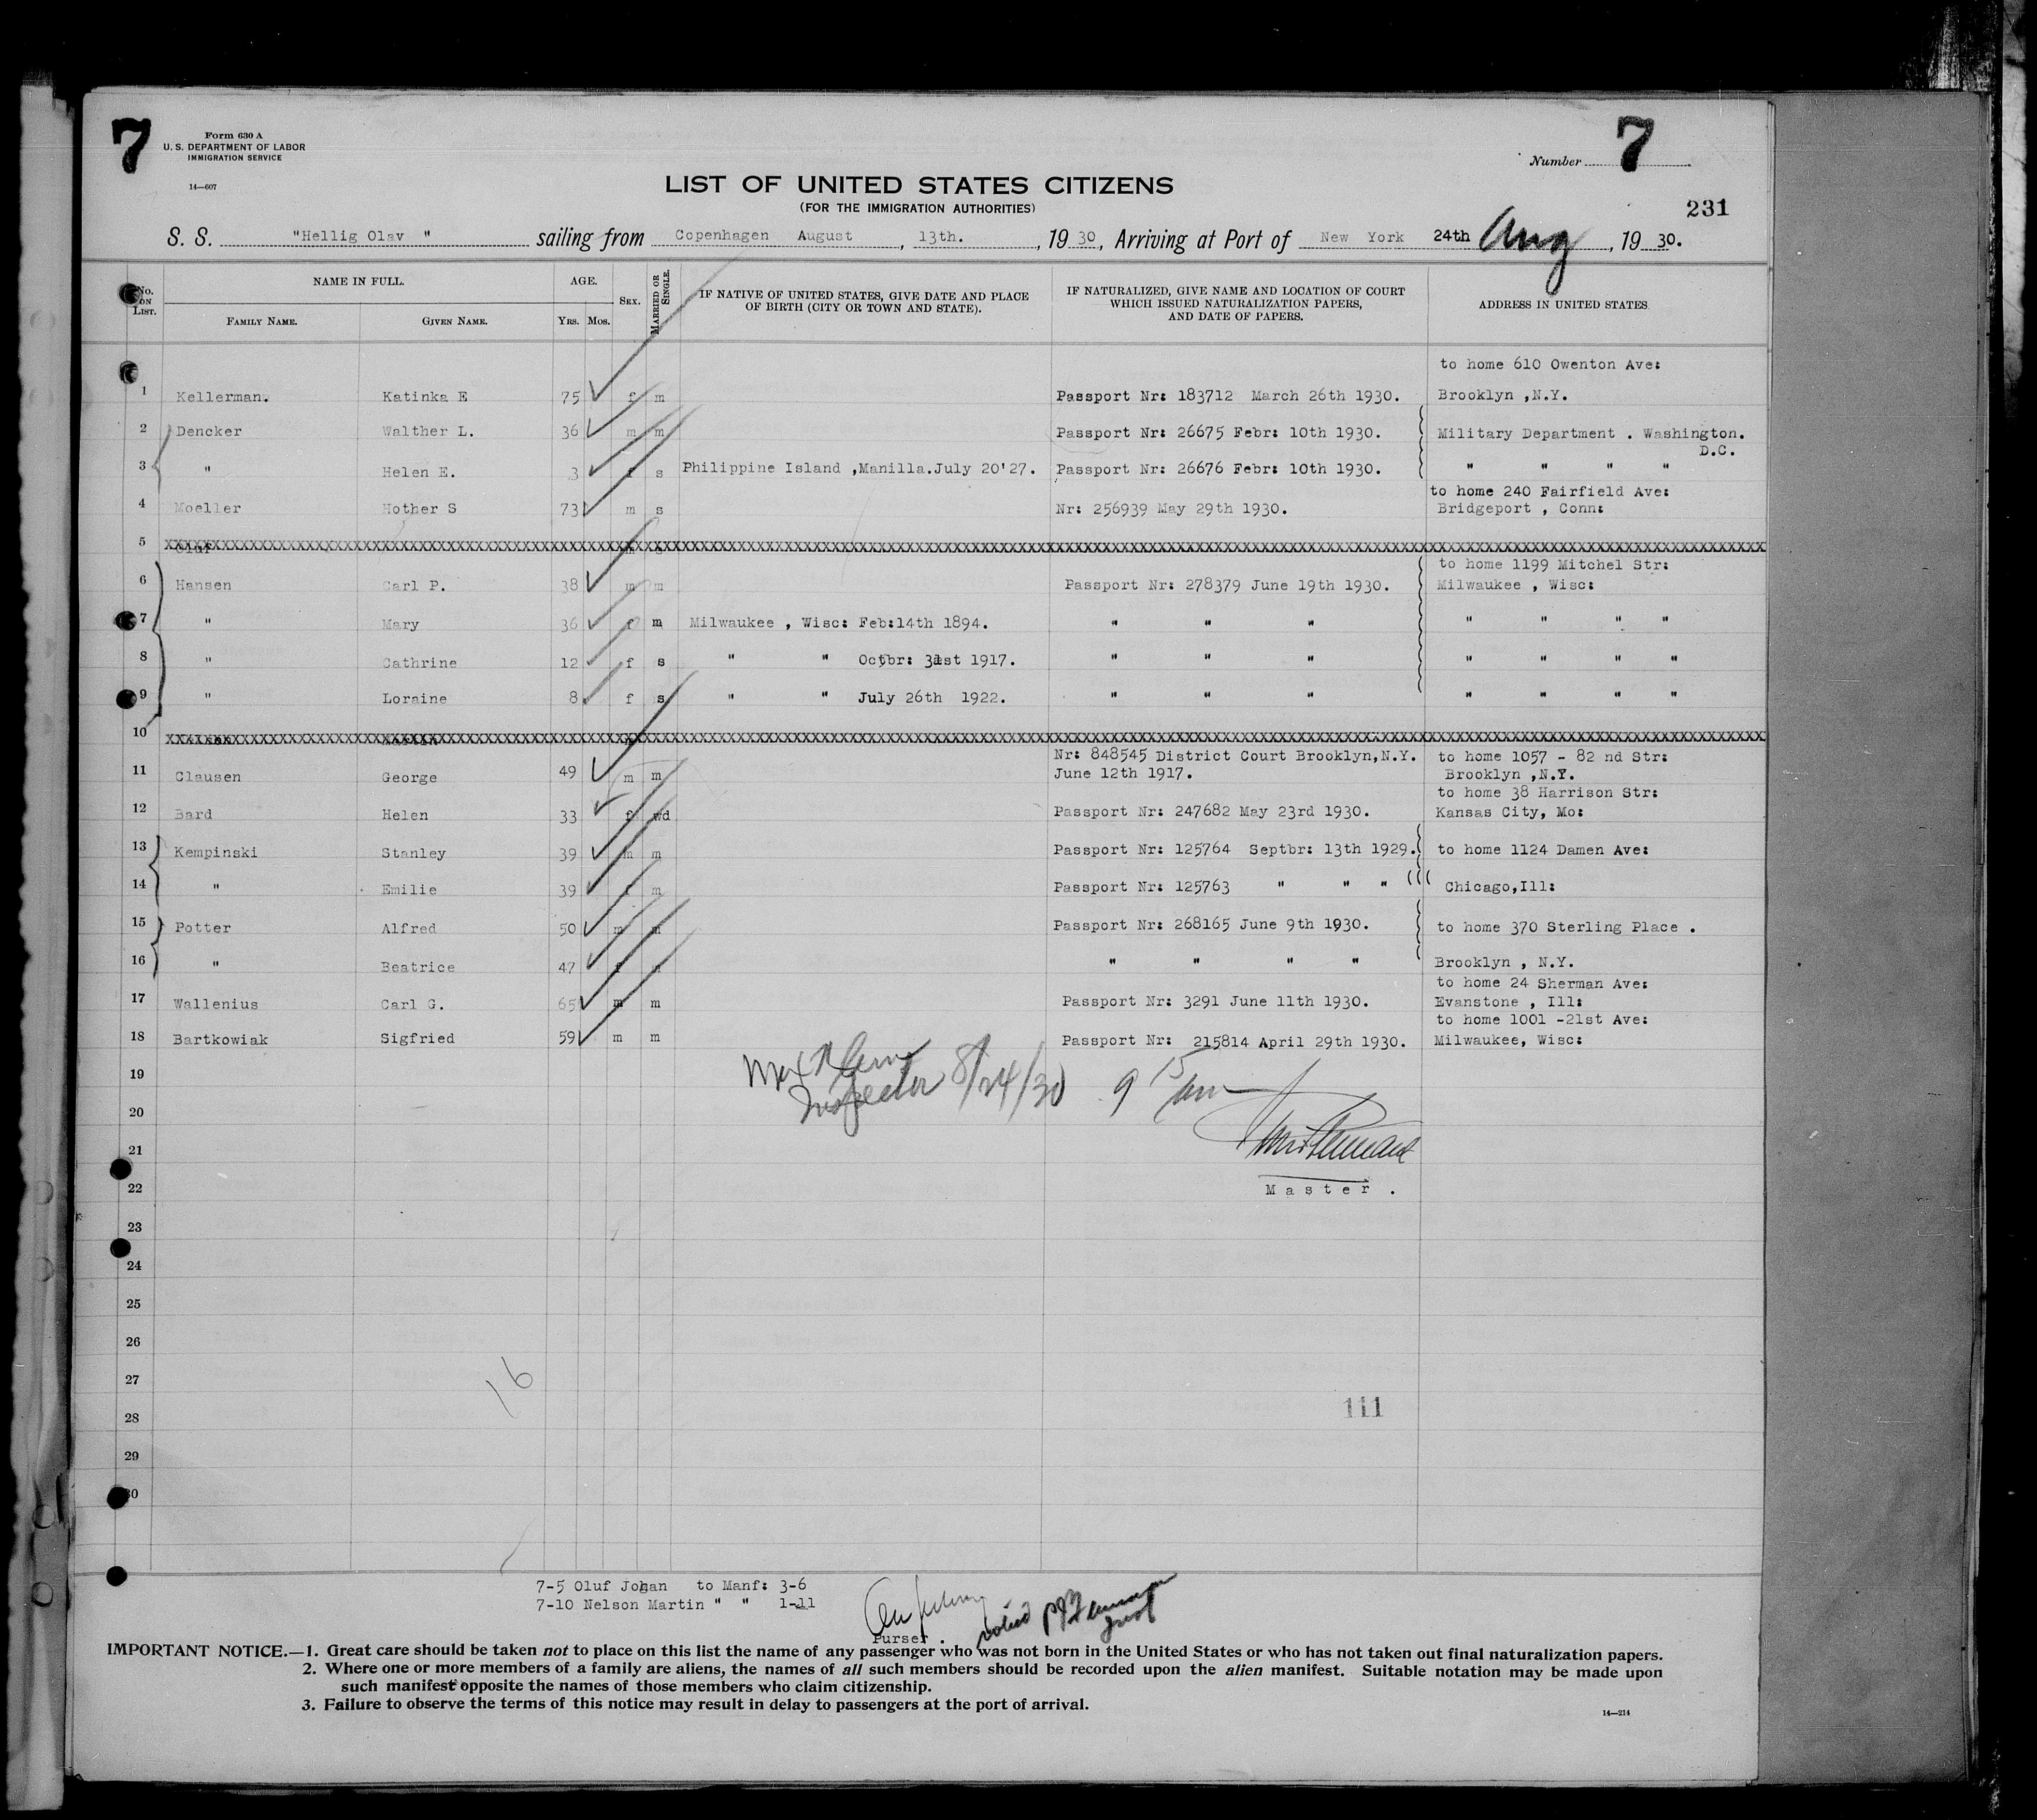 7
Form 630 A
U. S. DEPARTMENT OF LABOR
IMMIGRATION SERVICE
14—607
Number 7
LIST OF UNITED STATES CITIZENS
(FOR THE IMMIGRATION AUTHORITIES)
231
S. S. "Hellig Olav " sailing from Copenhagen August , 13th. , 19 30, Arriving at Port of New York 24th Aug , 19 30.
No. on List.
NAME IN FULL.
Family Name.
Given Name.
AGE.
Yrs. Mos.
Sex.
Married or Single.
IF NATIVE OF UNITED STATES, GIVE DATE AND PLACE OF BIRTH (CITY OR TOWN AND STATE).
IF NATURALIZED, GIVE NAME AND LOCATION OF COURT WHICH ISSUED NATURALIZATION PAPERS, AND DATE OF PAPERS.
ADDRESS IN UNITED STATES.
to home 610 Owenton Ave:
1 Kellerman. Katinka E 75 f m Passport Nr: 183712 March 26th 1930. Brooklyn ,N.Y.
2 Dencker Walther L. 36 m m Passport Nr: 26675 Febr: 10th 1930. Military Department . Washington.
D.C.
3 " Helen E. 3 f s Philippine Island ,Manilla.July 20'27. Passport Nr: 26676 Febr: 10th 1930. " " " "
to home 240 Fairfield Ave:
4 Moeller Hother S 73 m s Nr: 256939 May 29th 1930. Bridgeport , Conn:
5
to home 1199 Mitchel Str:
6 Hansen Carl P. 38 m m Passport Nr: 278379 June 19th 1930. Milwaukee , Wisc:
7 " Mary 36 f m Milwaukee , Wisc: Feb:14th 1894. " " " " " " "
8 " Cathrine 12 f s " " Octbr: 31st 1917. " " " " " " "
9 " Loraine 8 f s " " July 26th 1922. " " " " " " "
10
Nr: 848545 District Court Brooklyn,N.Y. to home 1057 - 82 nd Str:
11 Clausen George 49 m m June 12th 1917. Brooklyn ,N.Y.
to home 38 Harrison Str:
12 Bard Helen 33 f wd Passport Nr: 247682 May 23rd 1930. Kansas City, Mo:
13 Kempinski Stanley 39 m m Passport Nr: 125764 Septbr: 13th 1929. to home 1124 Damen Ave:
14 " Emilie 39 f m Passport Nr: 125763 " " " Chicago,Ill:
15 Potter Alfred 50 m m Passport Nr: 268165 June 9th 1930. to home 370 Sterling Place .
16 " Beatrice 47 f m " " " " Brooklyn , N.Y.
to home 24 Sherman Ave:
17 Wallenius Carl G. 65 m m Passport Nr: 3291 June 11th 1930. Evanstone , Ill:
to home 1001 -21st Ave:
18 Bartkowiak Sigfried 59 m m Passport Nr: 215814 April 29th 1930. Milwaukee, Wisc:
19
Inspector 8/24/30 9 15 am
20
21
22 Master .
23
24
25
26
27
16
28 111
29
30
7-5 Oluf Johan to Manf: 3-6
7-10 Nelson Martin " " 1-11
Purser .
IMPORTANT NOTICE.—1. Great care should be taken not to place on this list the name of any passenger who was not born in the United States or who has not taken out final naturalization papers.
2. Where one or more members of a family are aliens, the names of all such members should be recorded upon the alien manifest. Suitable notation may be made upon
such manifest opposite the names of those members who claim citizenship.
3. Failure to observe the terms of this notice may result in delay to passengers at the port of arrival.
14—214